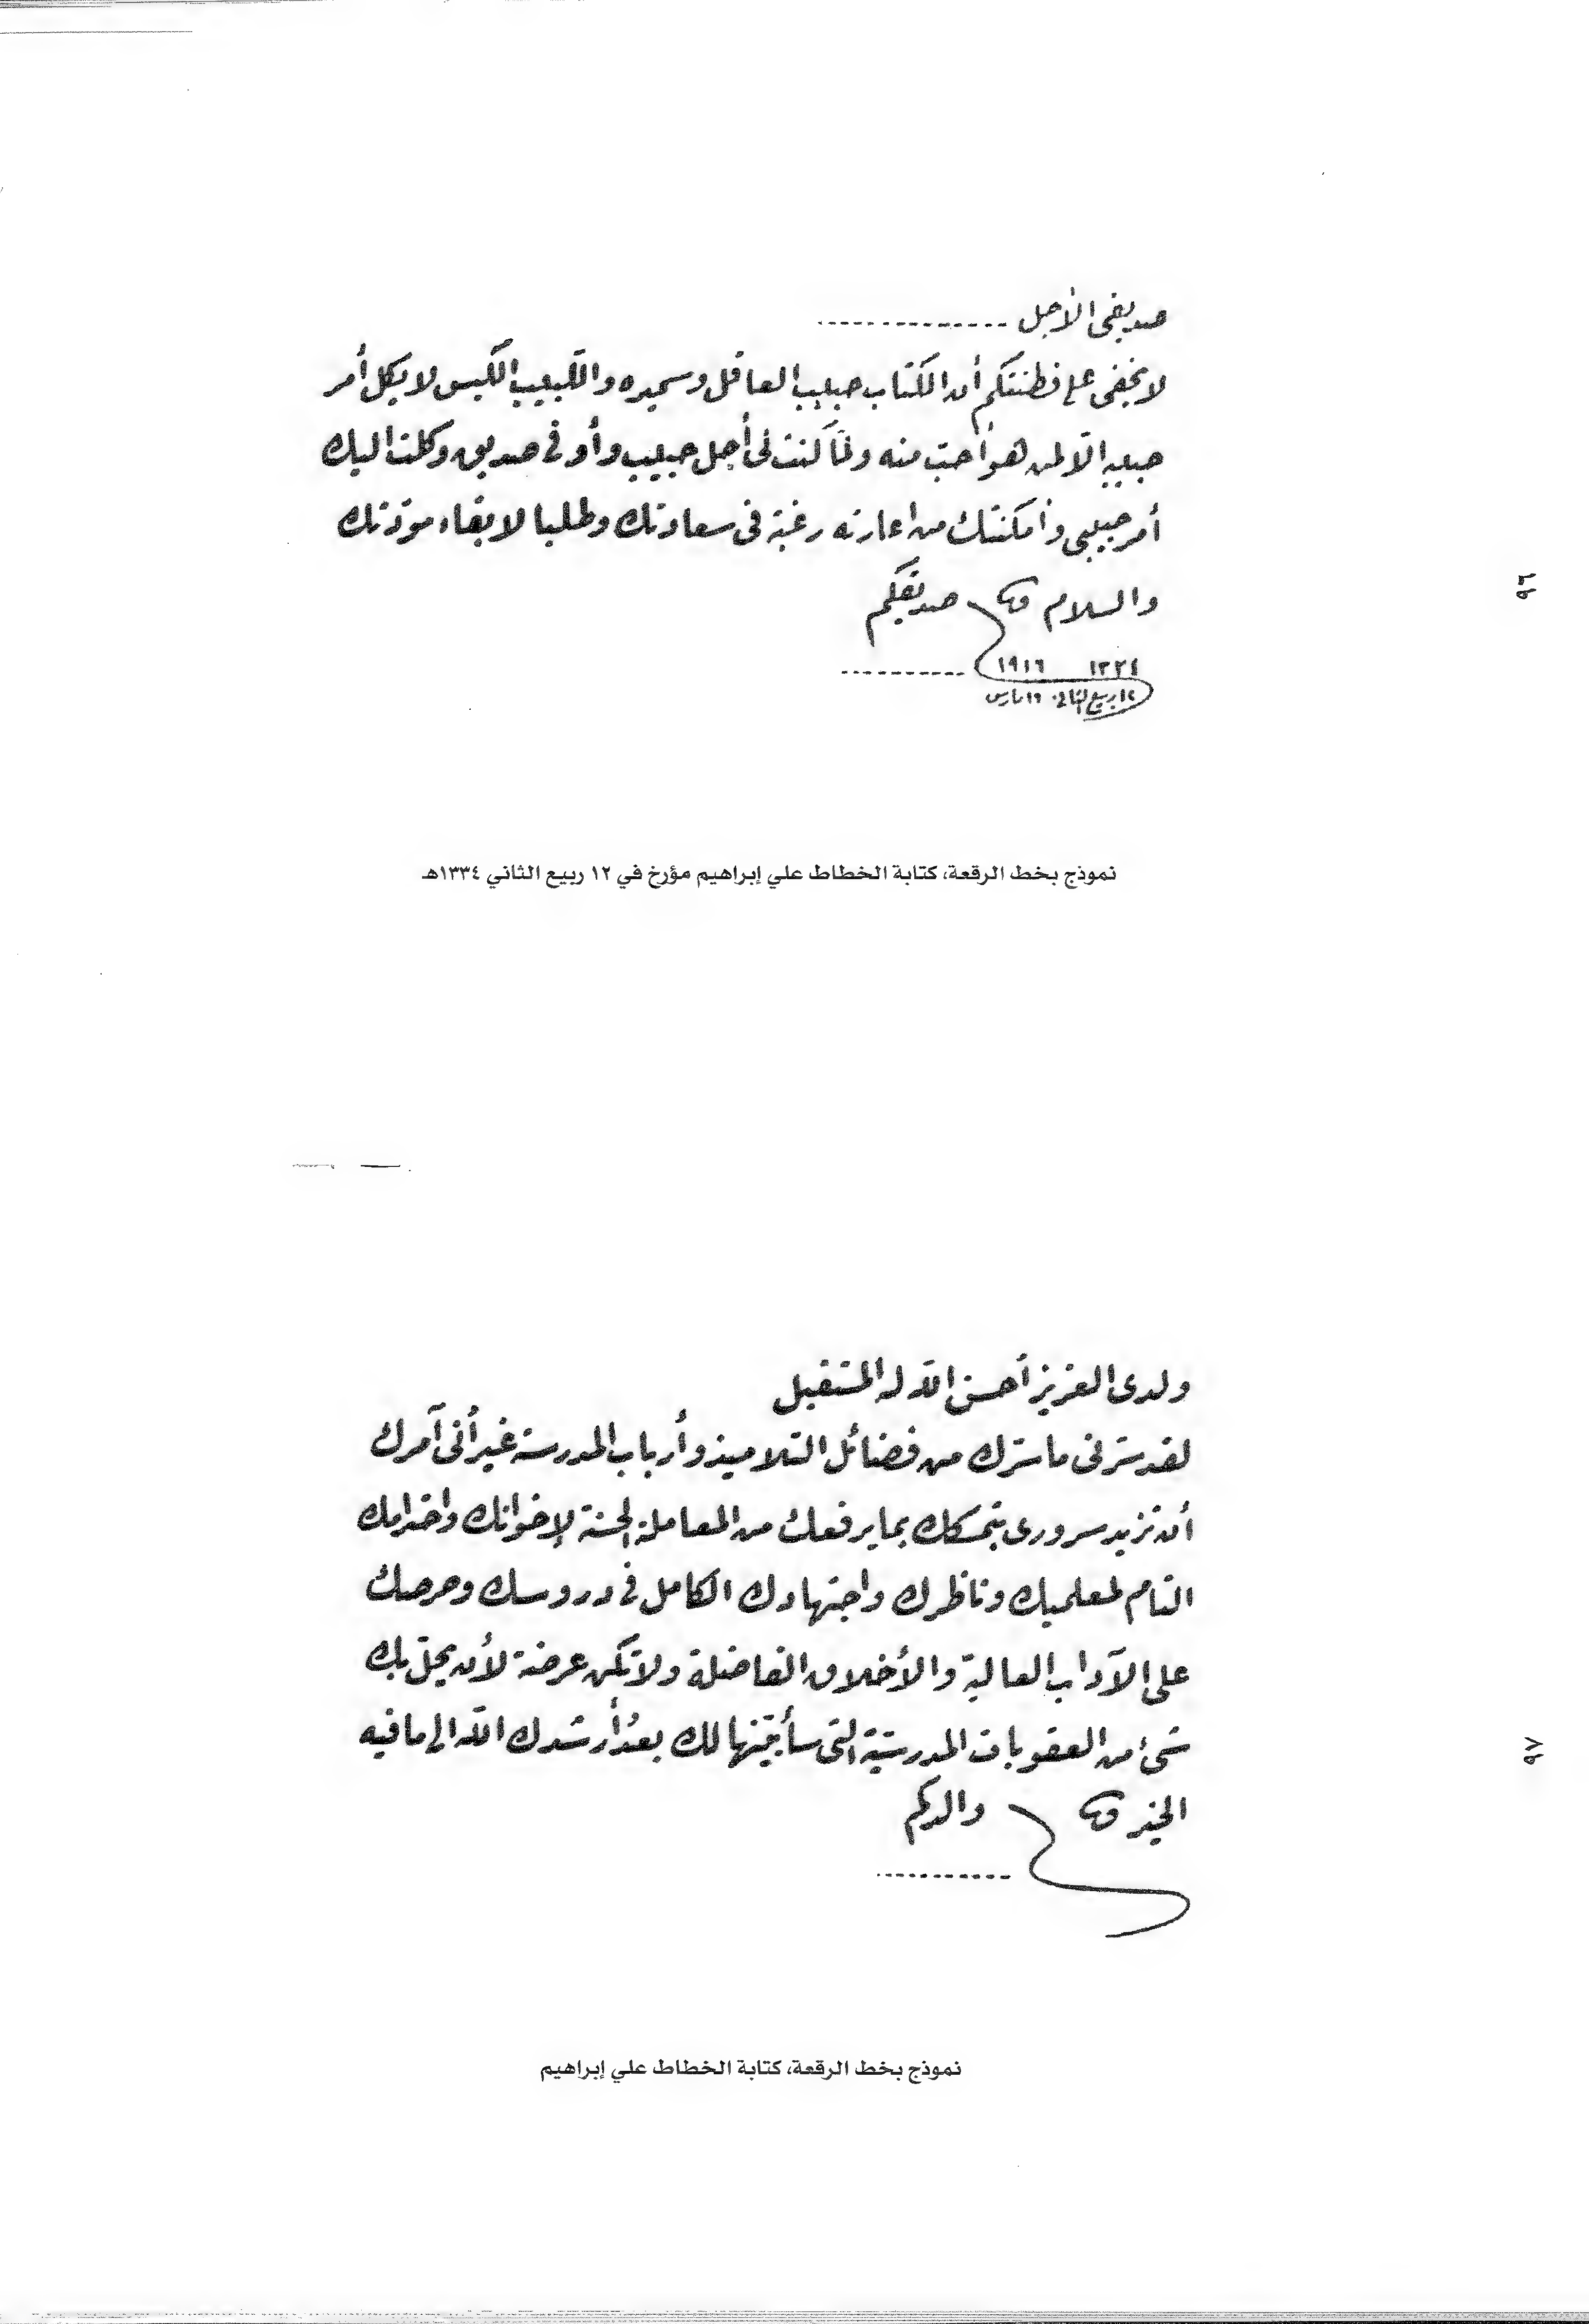 صديقى الأجل ...............
لا يخفى على فطنتكم أن الكتاب حبيب العاقل وسميره واللبيب الكيس لا يكل أمر
حبيبه الّا لمن هو أحبّ منه ولمّا كنت لى أجل حبيب وأوفى صديق وكلت اليك
أمر حبيبى وأمكنتك من اعارته رغبة فى سعادتك وطلبا لابقاء مودّتك
والسلام صديقكم
١٣٣٤ ١٩١٦ ...........
١٢ ربيع الثانى ١٦ مارس
نموذج بخط الرقعة، كتابة الخطاط علي إبراهيم مؤرخ في ١٢ ربيع الثاني ١٣٣٤هـ
٩٦
ولدى العزيز أحسن اللّه له المستقبل
لقد سرّنى ما سرّك من فضائل التلاميذ وأرباب المدرسة غير أنى آمرك
أن تزيد سرورى بتمسكك بما يرفعك من المعاملة الحسنة لإخوانك واحترامك
التام لمعلميك وناظرك واجتهادك الكامل فى دروسك وحرصك
على الآداب العالية والأخلاق الفاضلة ولا تكن عرضة لأن يحلّ بك
شىء من العقوبات المدرسيّة التى سأبيّنها لك بعدُ أرشدك اللّه الى ما فيه
الخير والدكم
...........
نموذج بخط الرقعة، كتابة الخطاط علي إبراهيم
٩٧